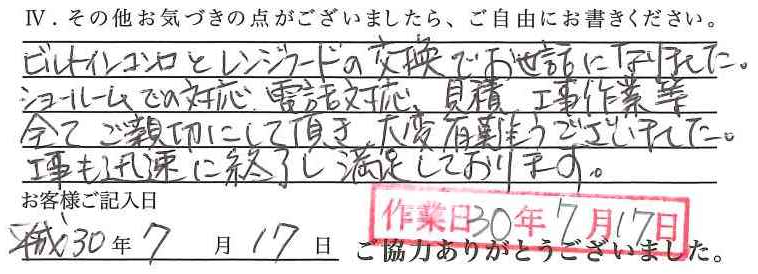 Ⅳ．その他お気づきの点がございましたら、ご自由にお書きください。
ビルトインコンロとレンジフードの交換でお世話になりました。
ショールームでの対応、電話対応、見積、工事作業等
全てご親切にして頂き、大変有難うございました。
工事も迅速に終了し満足しております。
お客様ご記入日
平成30年7月17日
作業日30年7月17日
ご協力ありがとうございました。